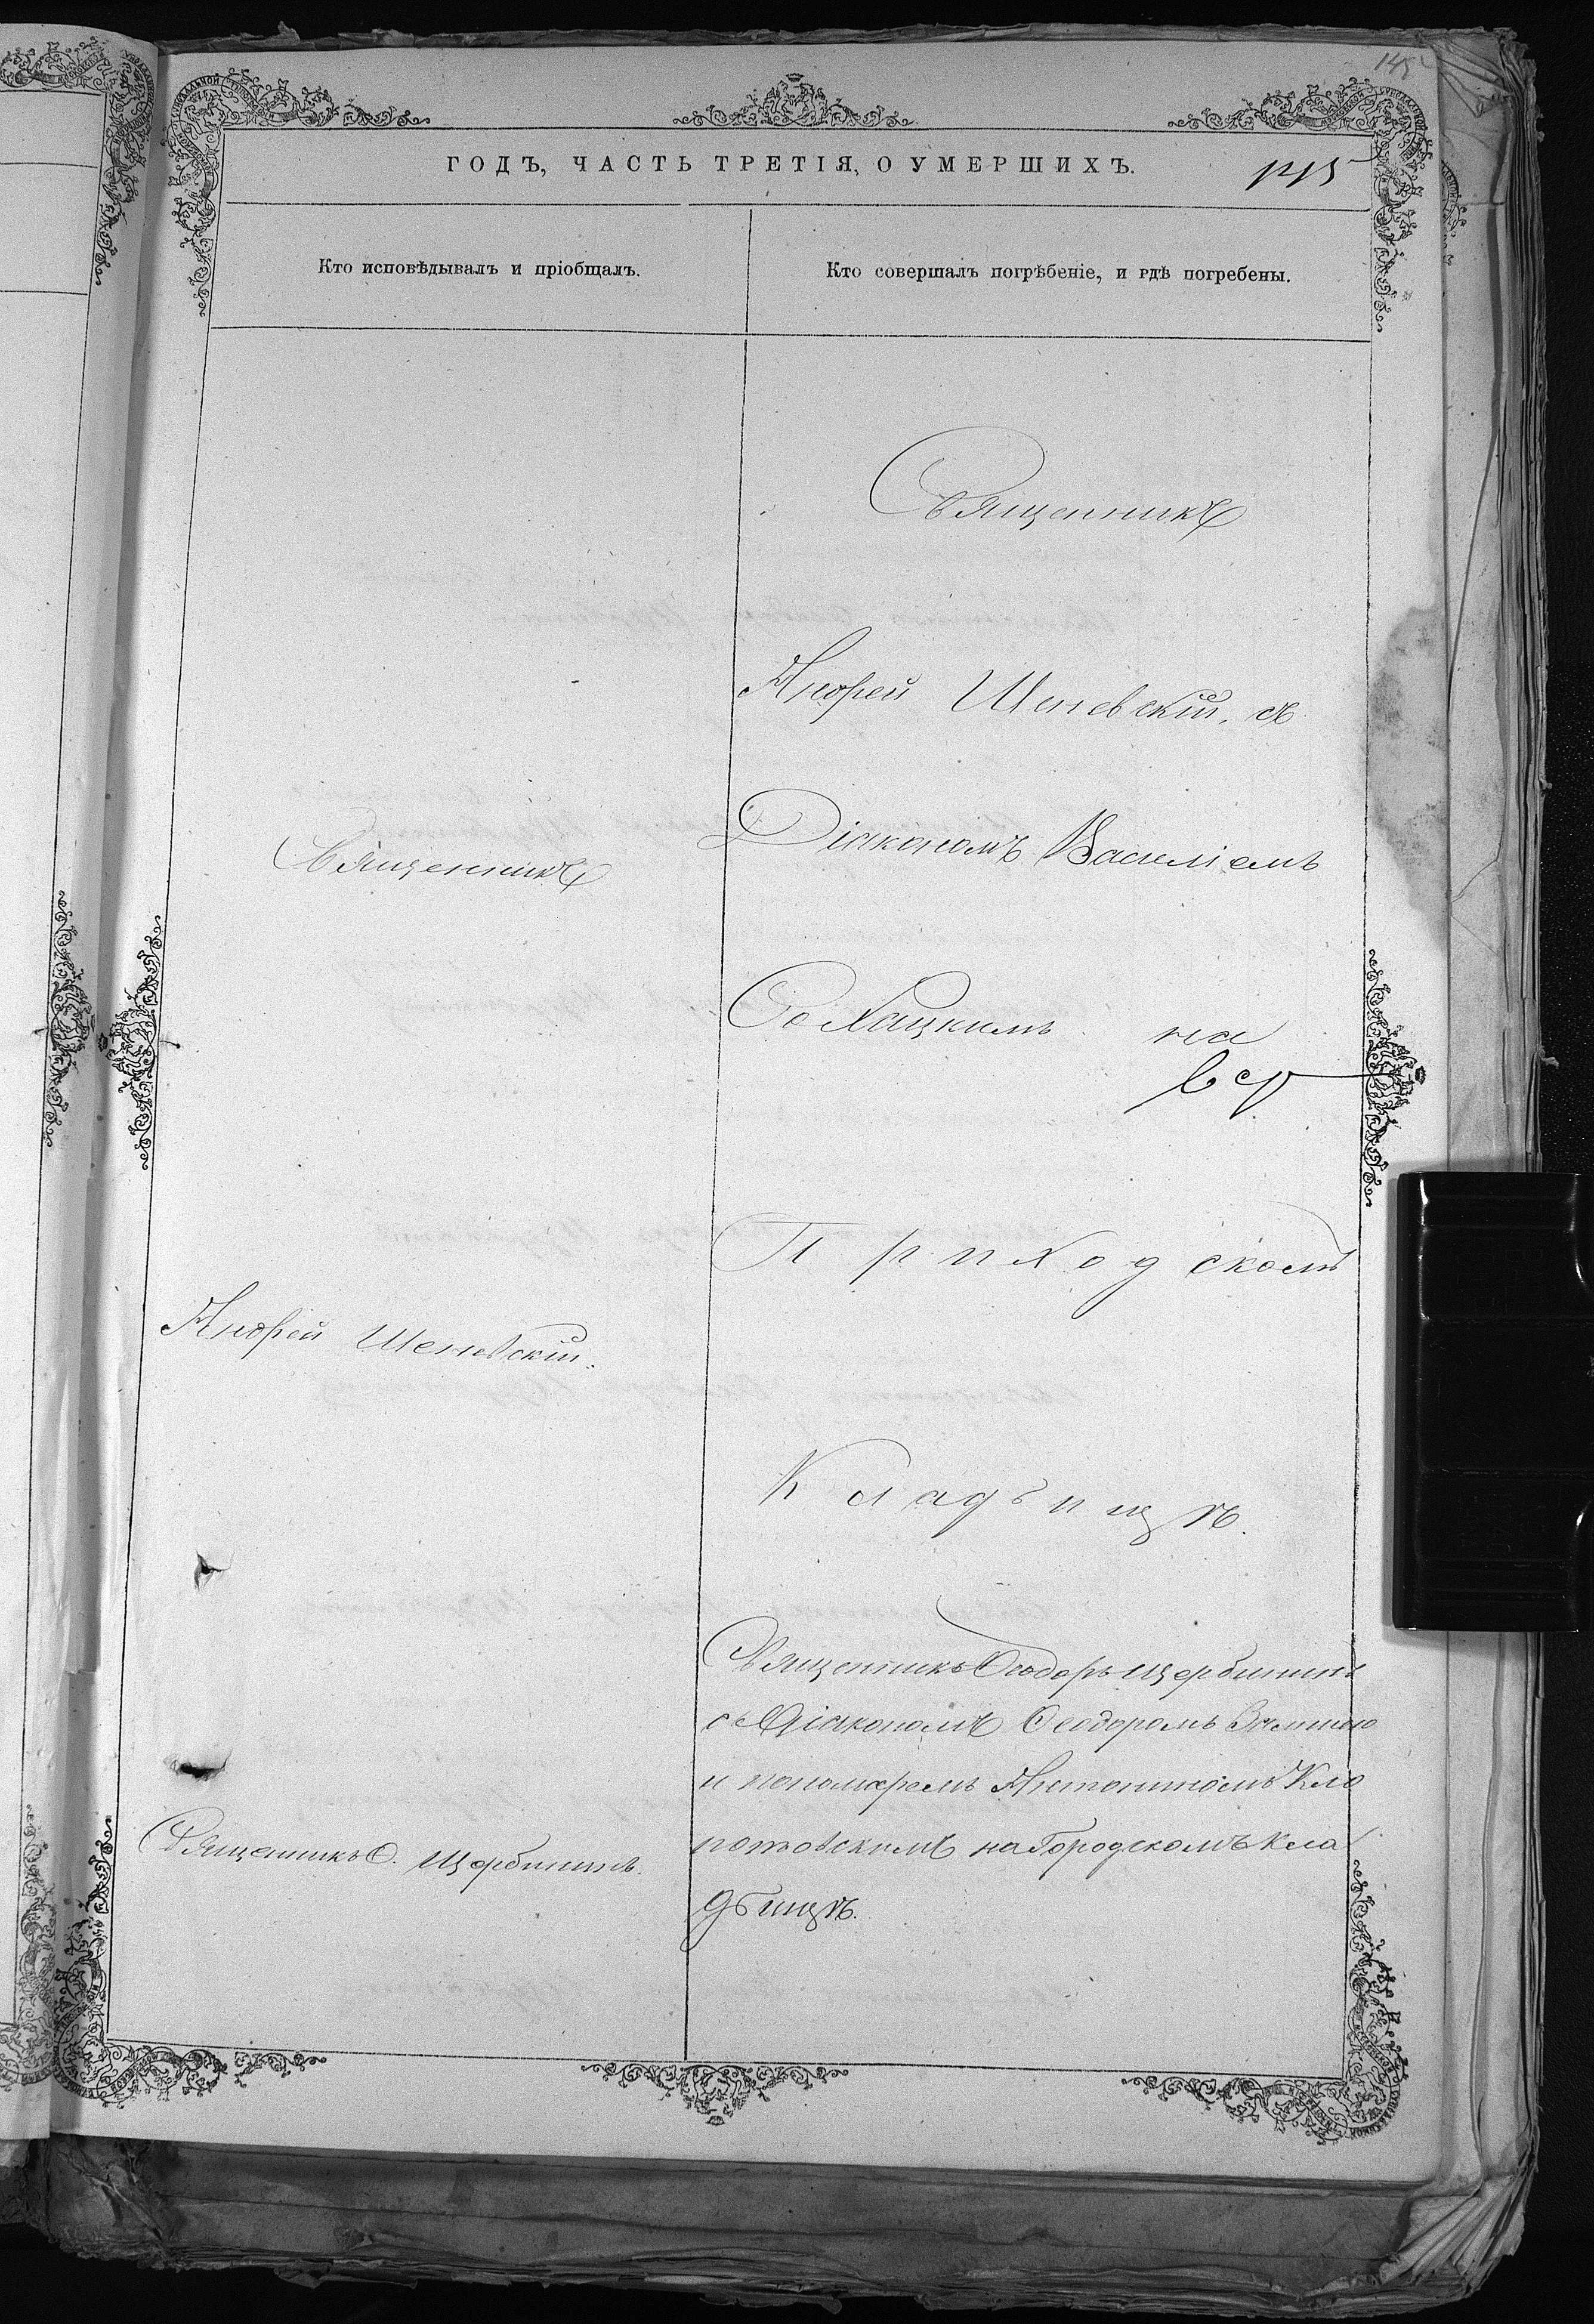 145
ГОДЪ, ЧАСТЬ ТРЕТІЯ, О УМЕРШИХЪ.
145
Кто исповѣдывалъ и пріобщалъ.
Кто совершалъ погрѣбеніе, и гдѣ погребены.
Священникъ
Андрей Шеневскій.
Священникъ Ѳ. Щербининъ.
Священникъ
Андрей Шеневскій, съ
Діакономъ Василіемъ
на
Приходскомъ
Кладбищѣ.
Священникъ Ѳеодоръ Щербининъ
съ Діакономъ Ѳеодоромъ
и пономаремъ Антониномъ Кло
потовскимъ на Городскомъ кла
дбищѣ.